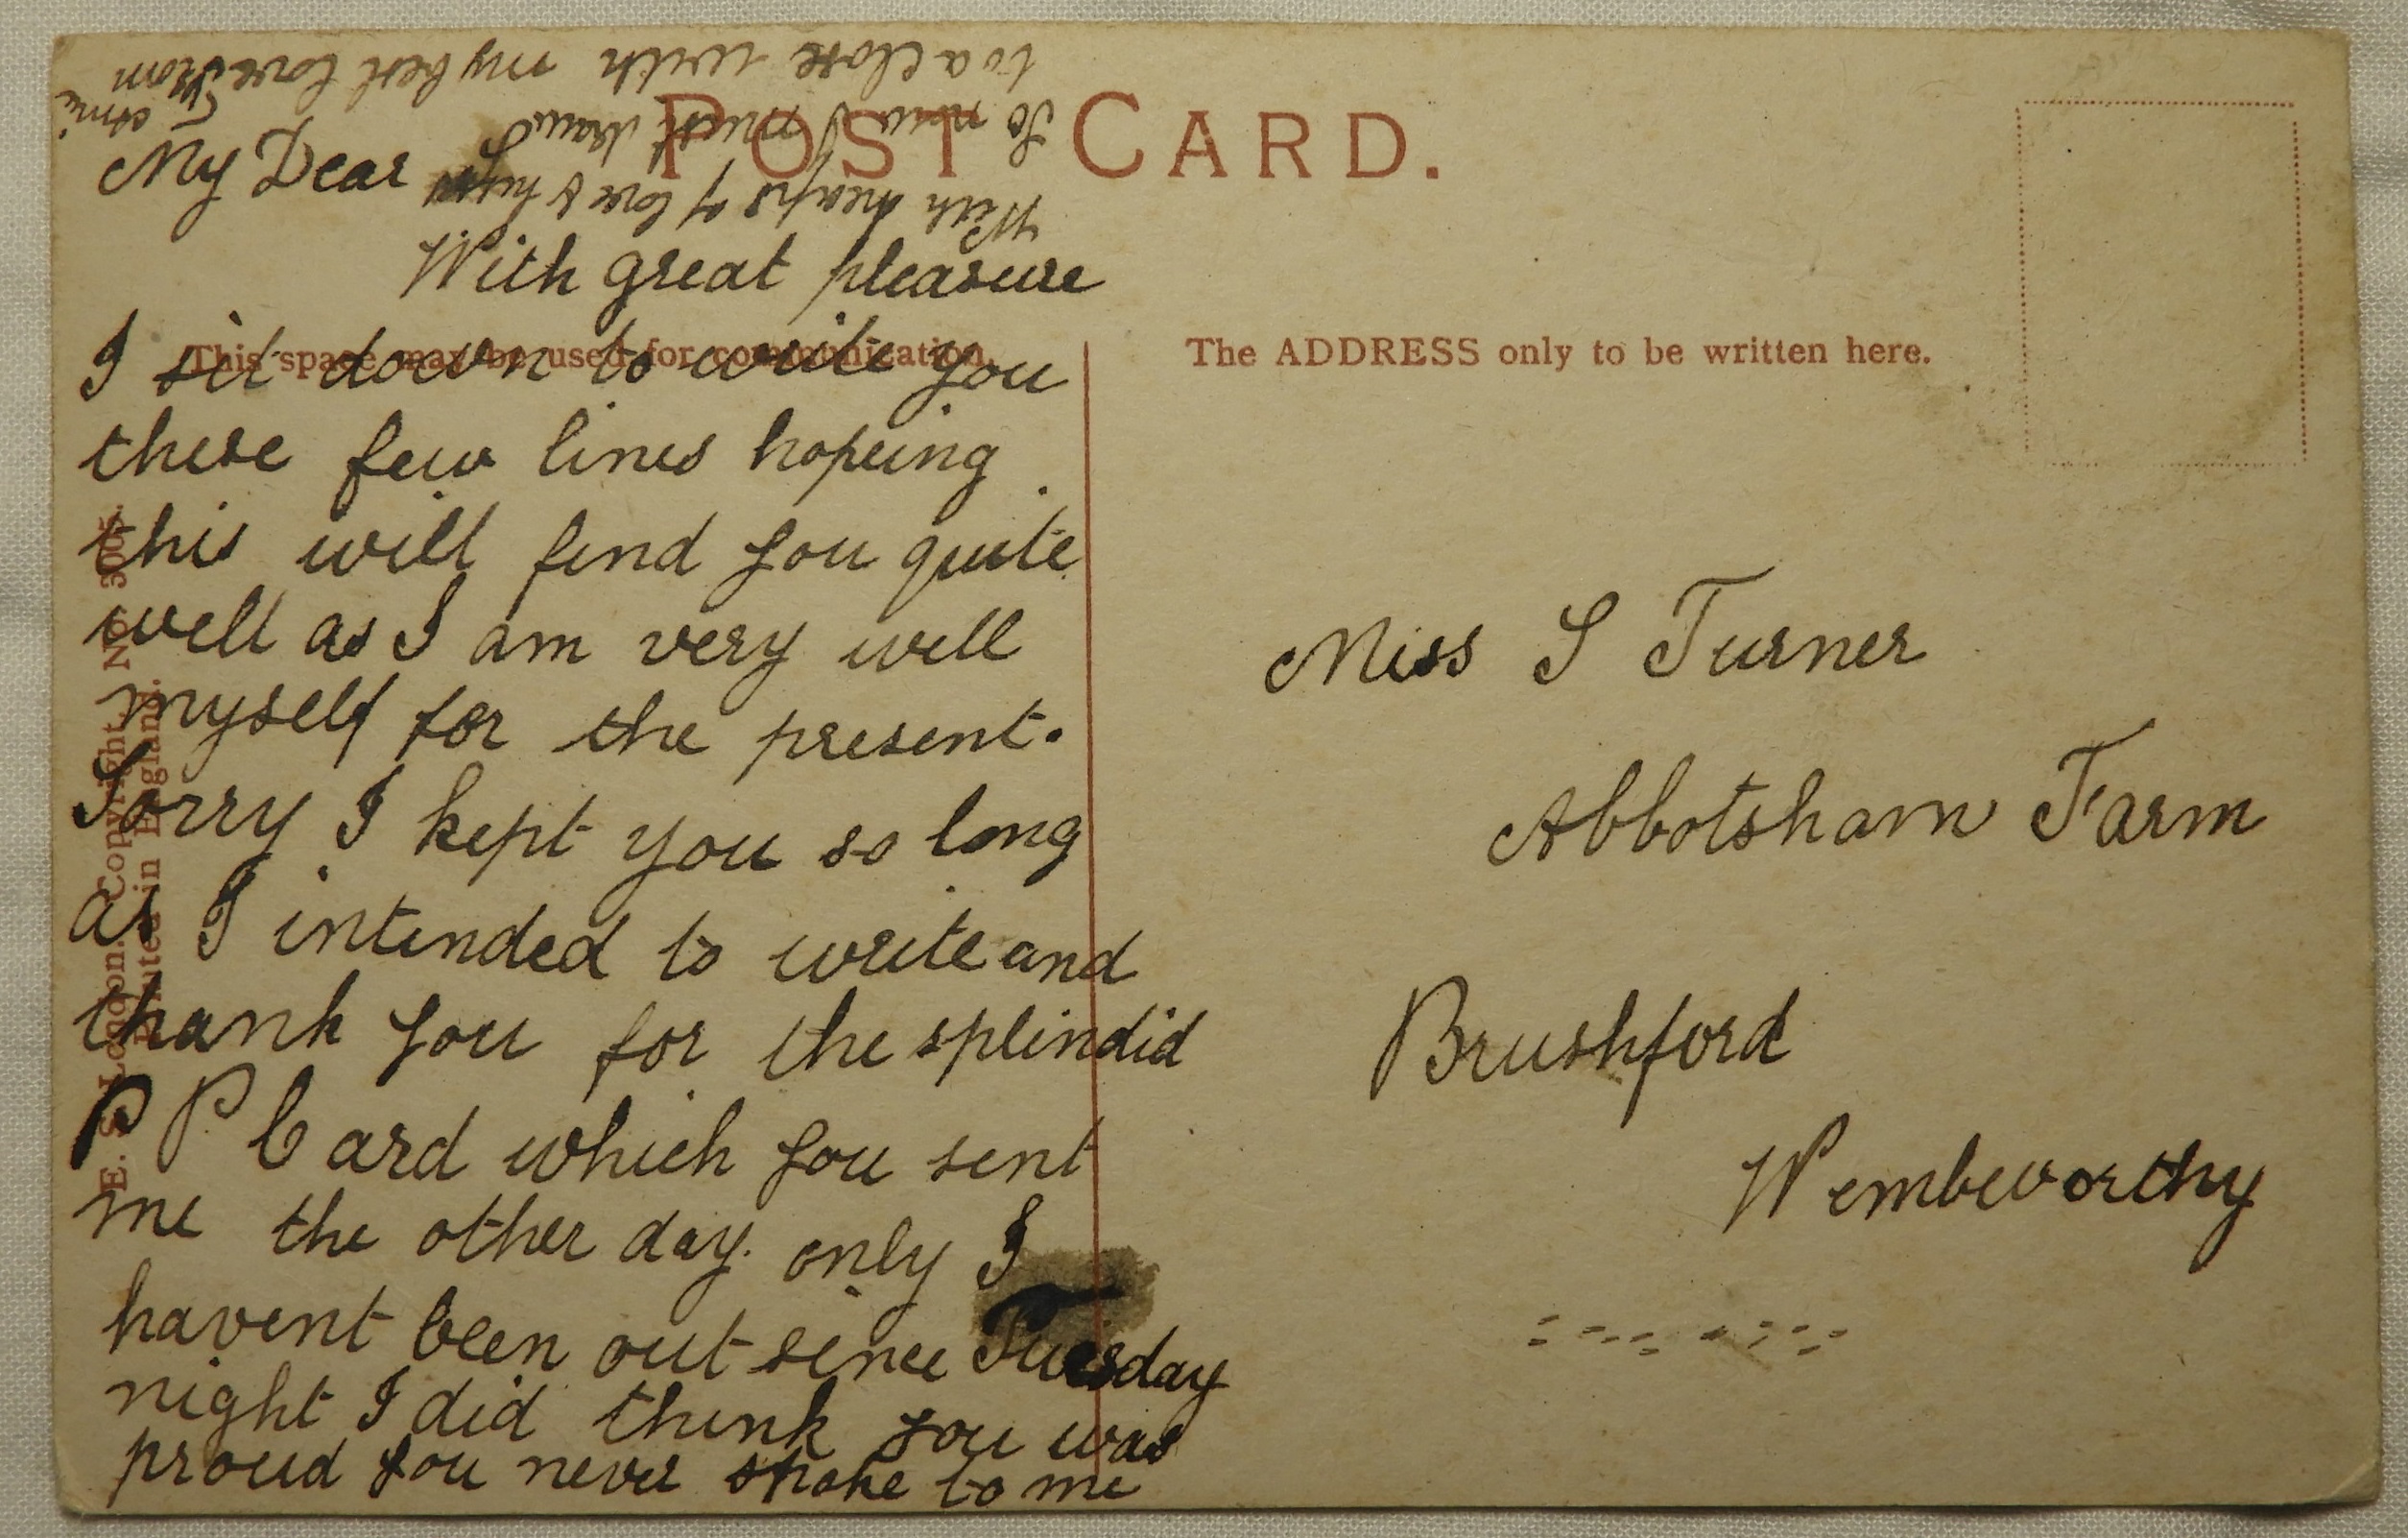 POST CARD.
My Dear
With great pleasure
This space may be used for communication.
I sit down to write you
these few lines hopeing
this will find you quite
well as I am very well
myself for the present.
Sorry I kept you so long
as I intended to write and
thank you for the splindid
P P Card which you sent
me the other day. only I
havent been out since Tuesday
night I did think you was
proud you never spoke to me
So now I must draw
to a close with my best love from
With heaps of love &
The ADDRESS only to be written here.
Miss S Turner
Abbotsham Farm
Brushford
Wembworthy
E. S. London. Copyright. No. 3005.
Printed in England.